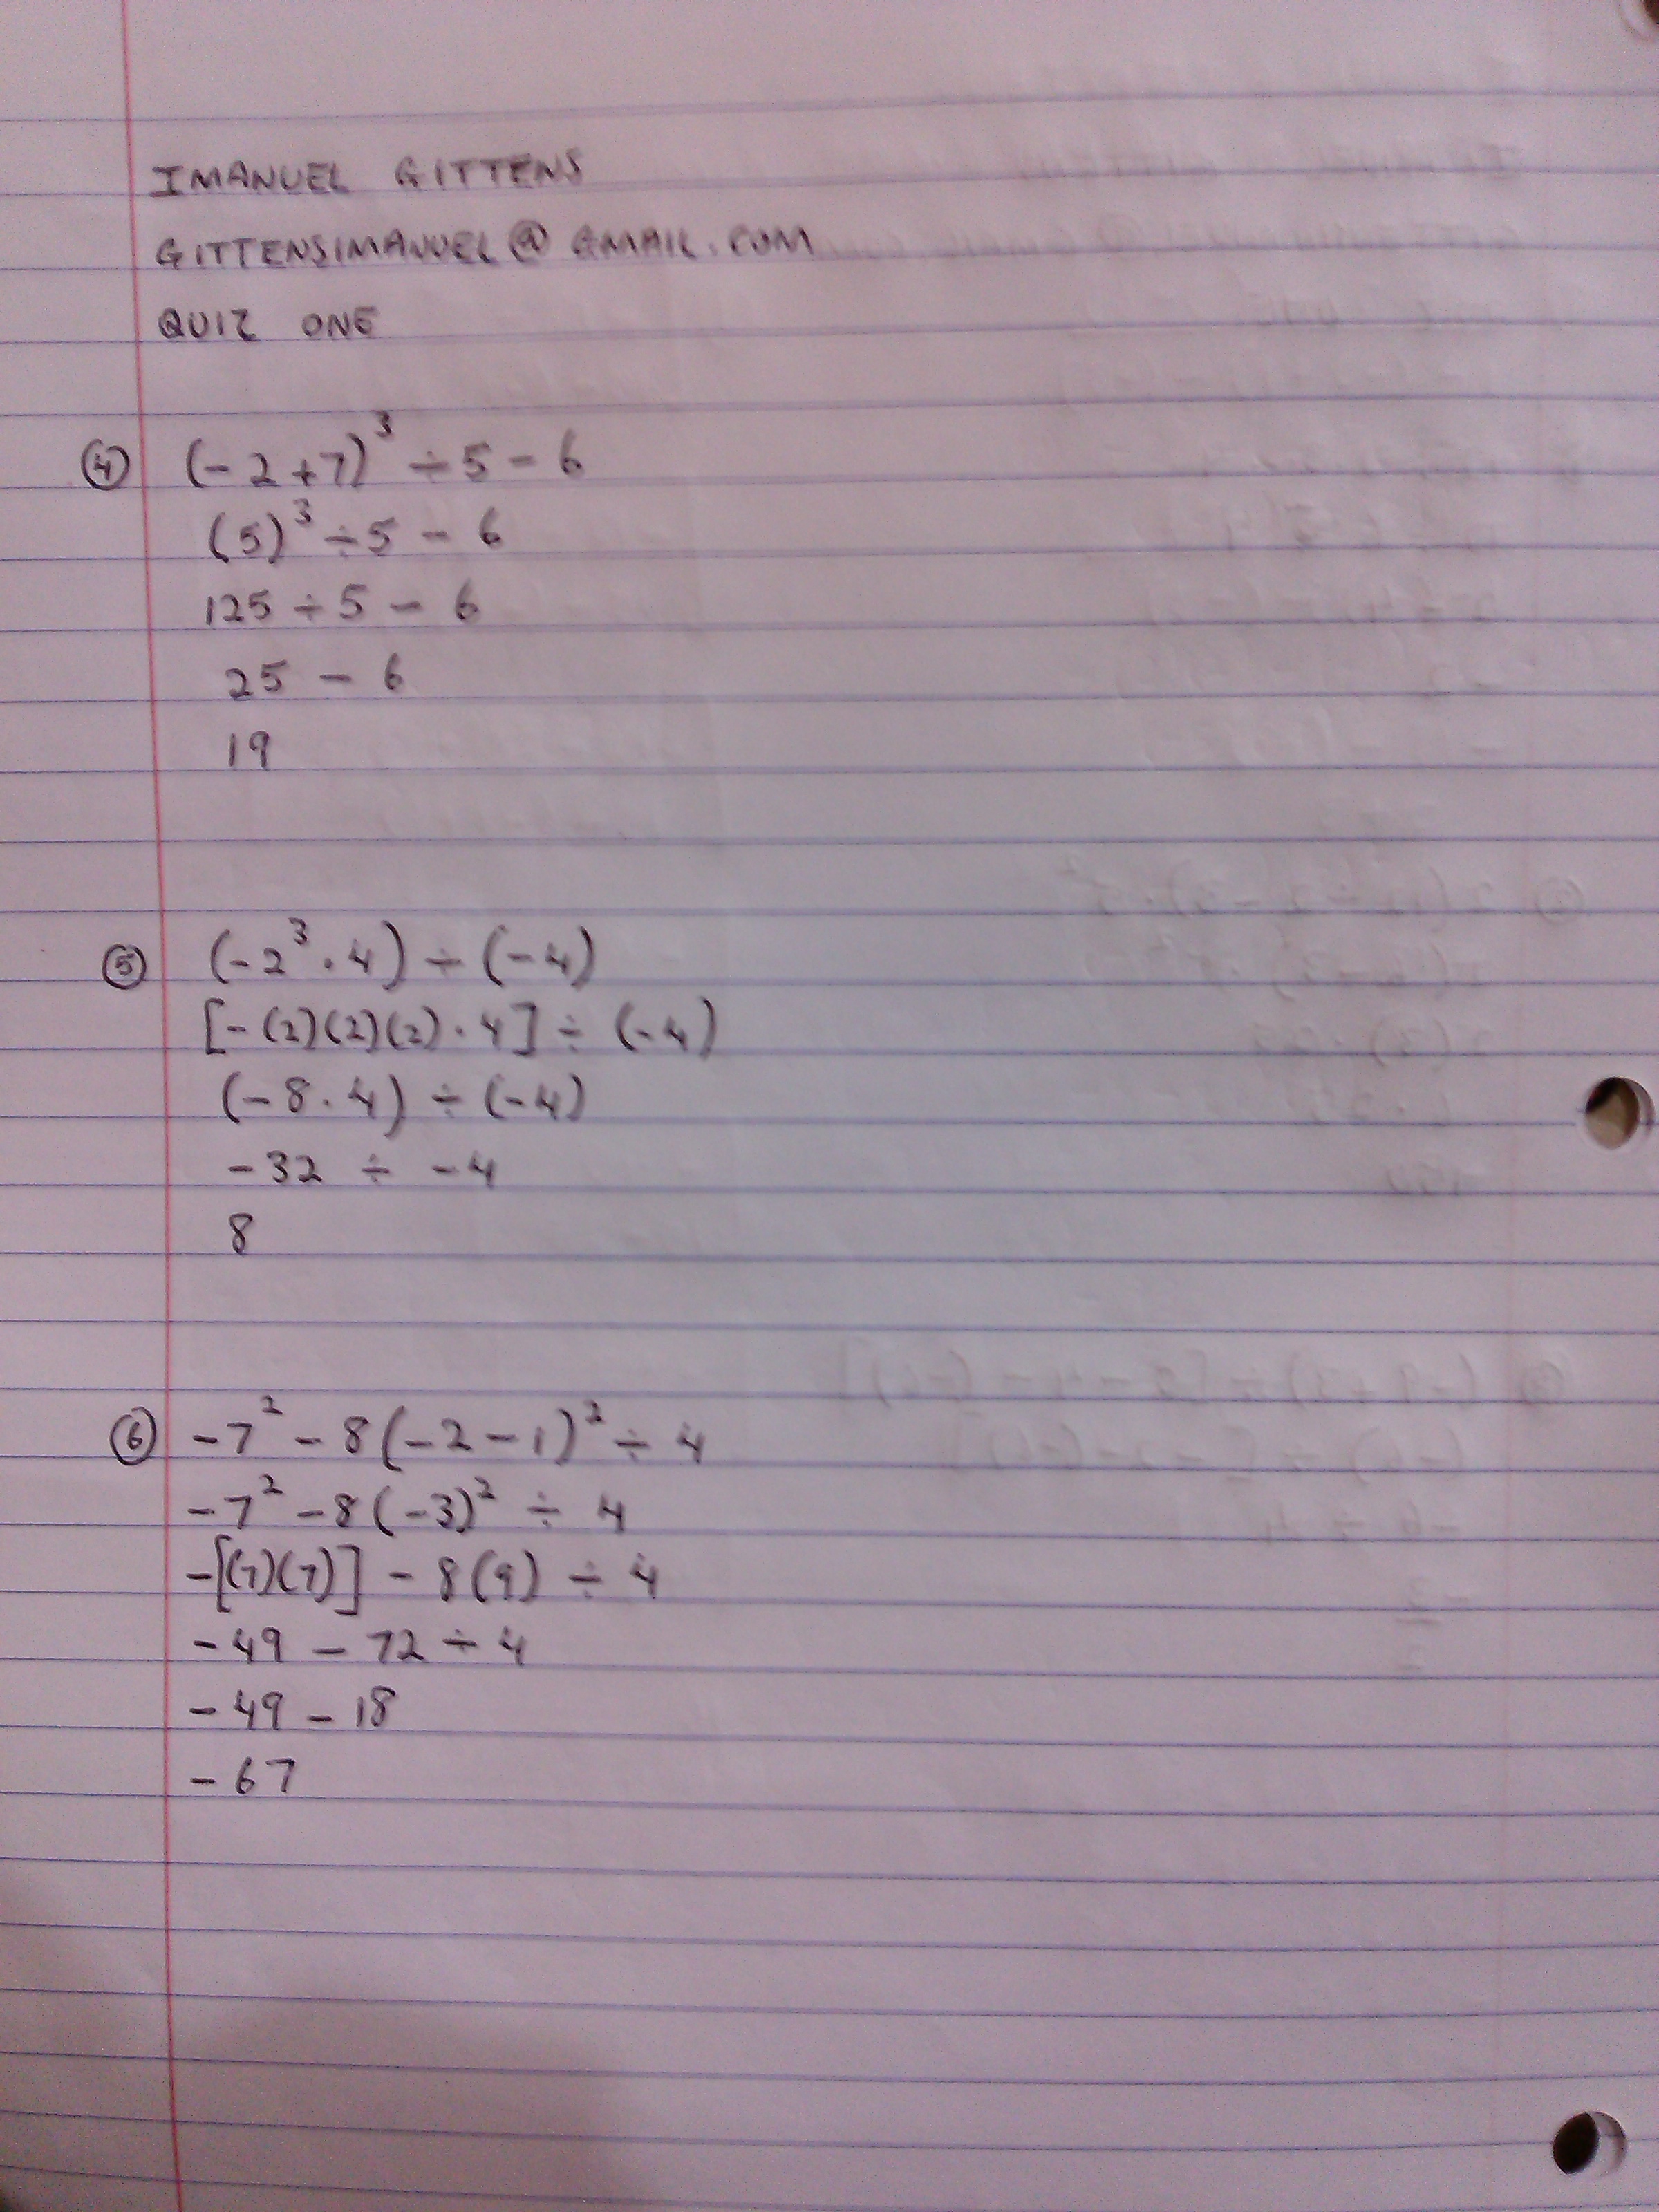 IMANUEL GITTENS
GITTENSIMANUEL@GMAIL.COM
QUIZ ONE
④ (-2+7)³ ÷ 5 - 6
(5)³ ÷ 5 - 6
125 ÷ 5 - 6
25 - 6
19
⑤ (-2³ · 4) ÷ (-4)
[-(2)(2)(2) · 4] ÷ (-4)
(-8 · 4) ÷ (-4)
-32 ÷ -4
8
⑥ -7² - 8(-2-1)² ÷ 4
-7² - 8(-3)² ÷ 4
-[(7)(7)] - 8(9) ÷ 4
-49 - 72 ÷ 4
-49 - 18
-67